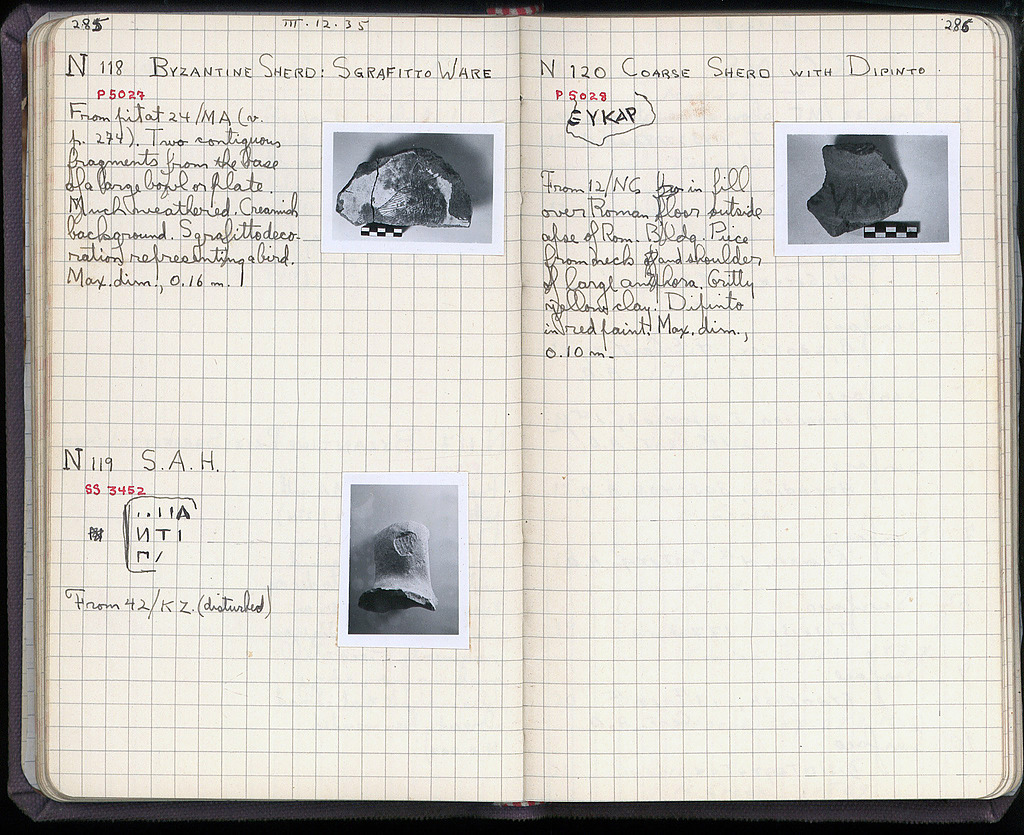 285
III.12.35
N 118 BYZANTINE SHERD: SGRAFITTO WARE
P 5027
From pit at 24/MA (v.
p. 274). Two contiguous
fragments from the base
of a large bowl or plate.
Much weathered. Creamish
background. Sgrafitto deco-
ration representing a bird.
Max. dim., 0.16 m.
N 119 S.A.H.
SS 3452
From 42/KZ. (disturbed)
286
N 120 COARSE SHERD WITH DIPINTO.
P 5028
ΕΥΚΑΡ
From 12/NG in fill
over Roman floor outside
apse of Rom. Bldg. Piece
from neck and shoulder
of large amphora. Gritty
yellow clay. Dipinto
in red paint. Max. dim.,
0.10 m.